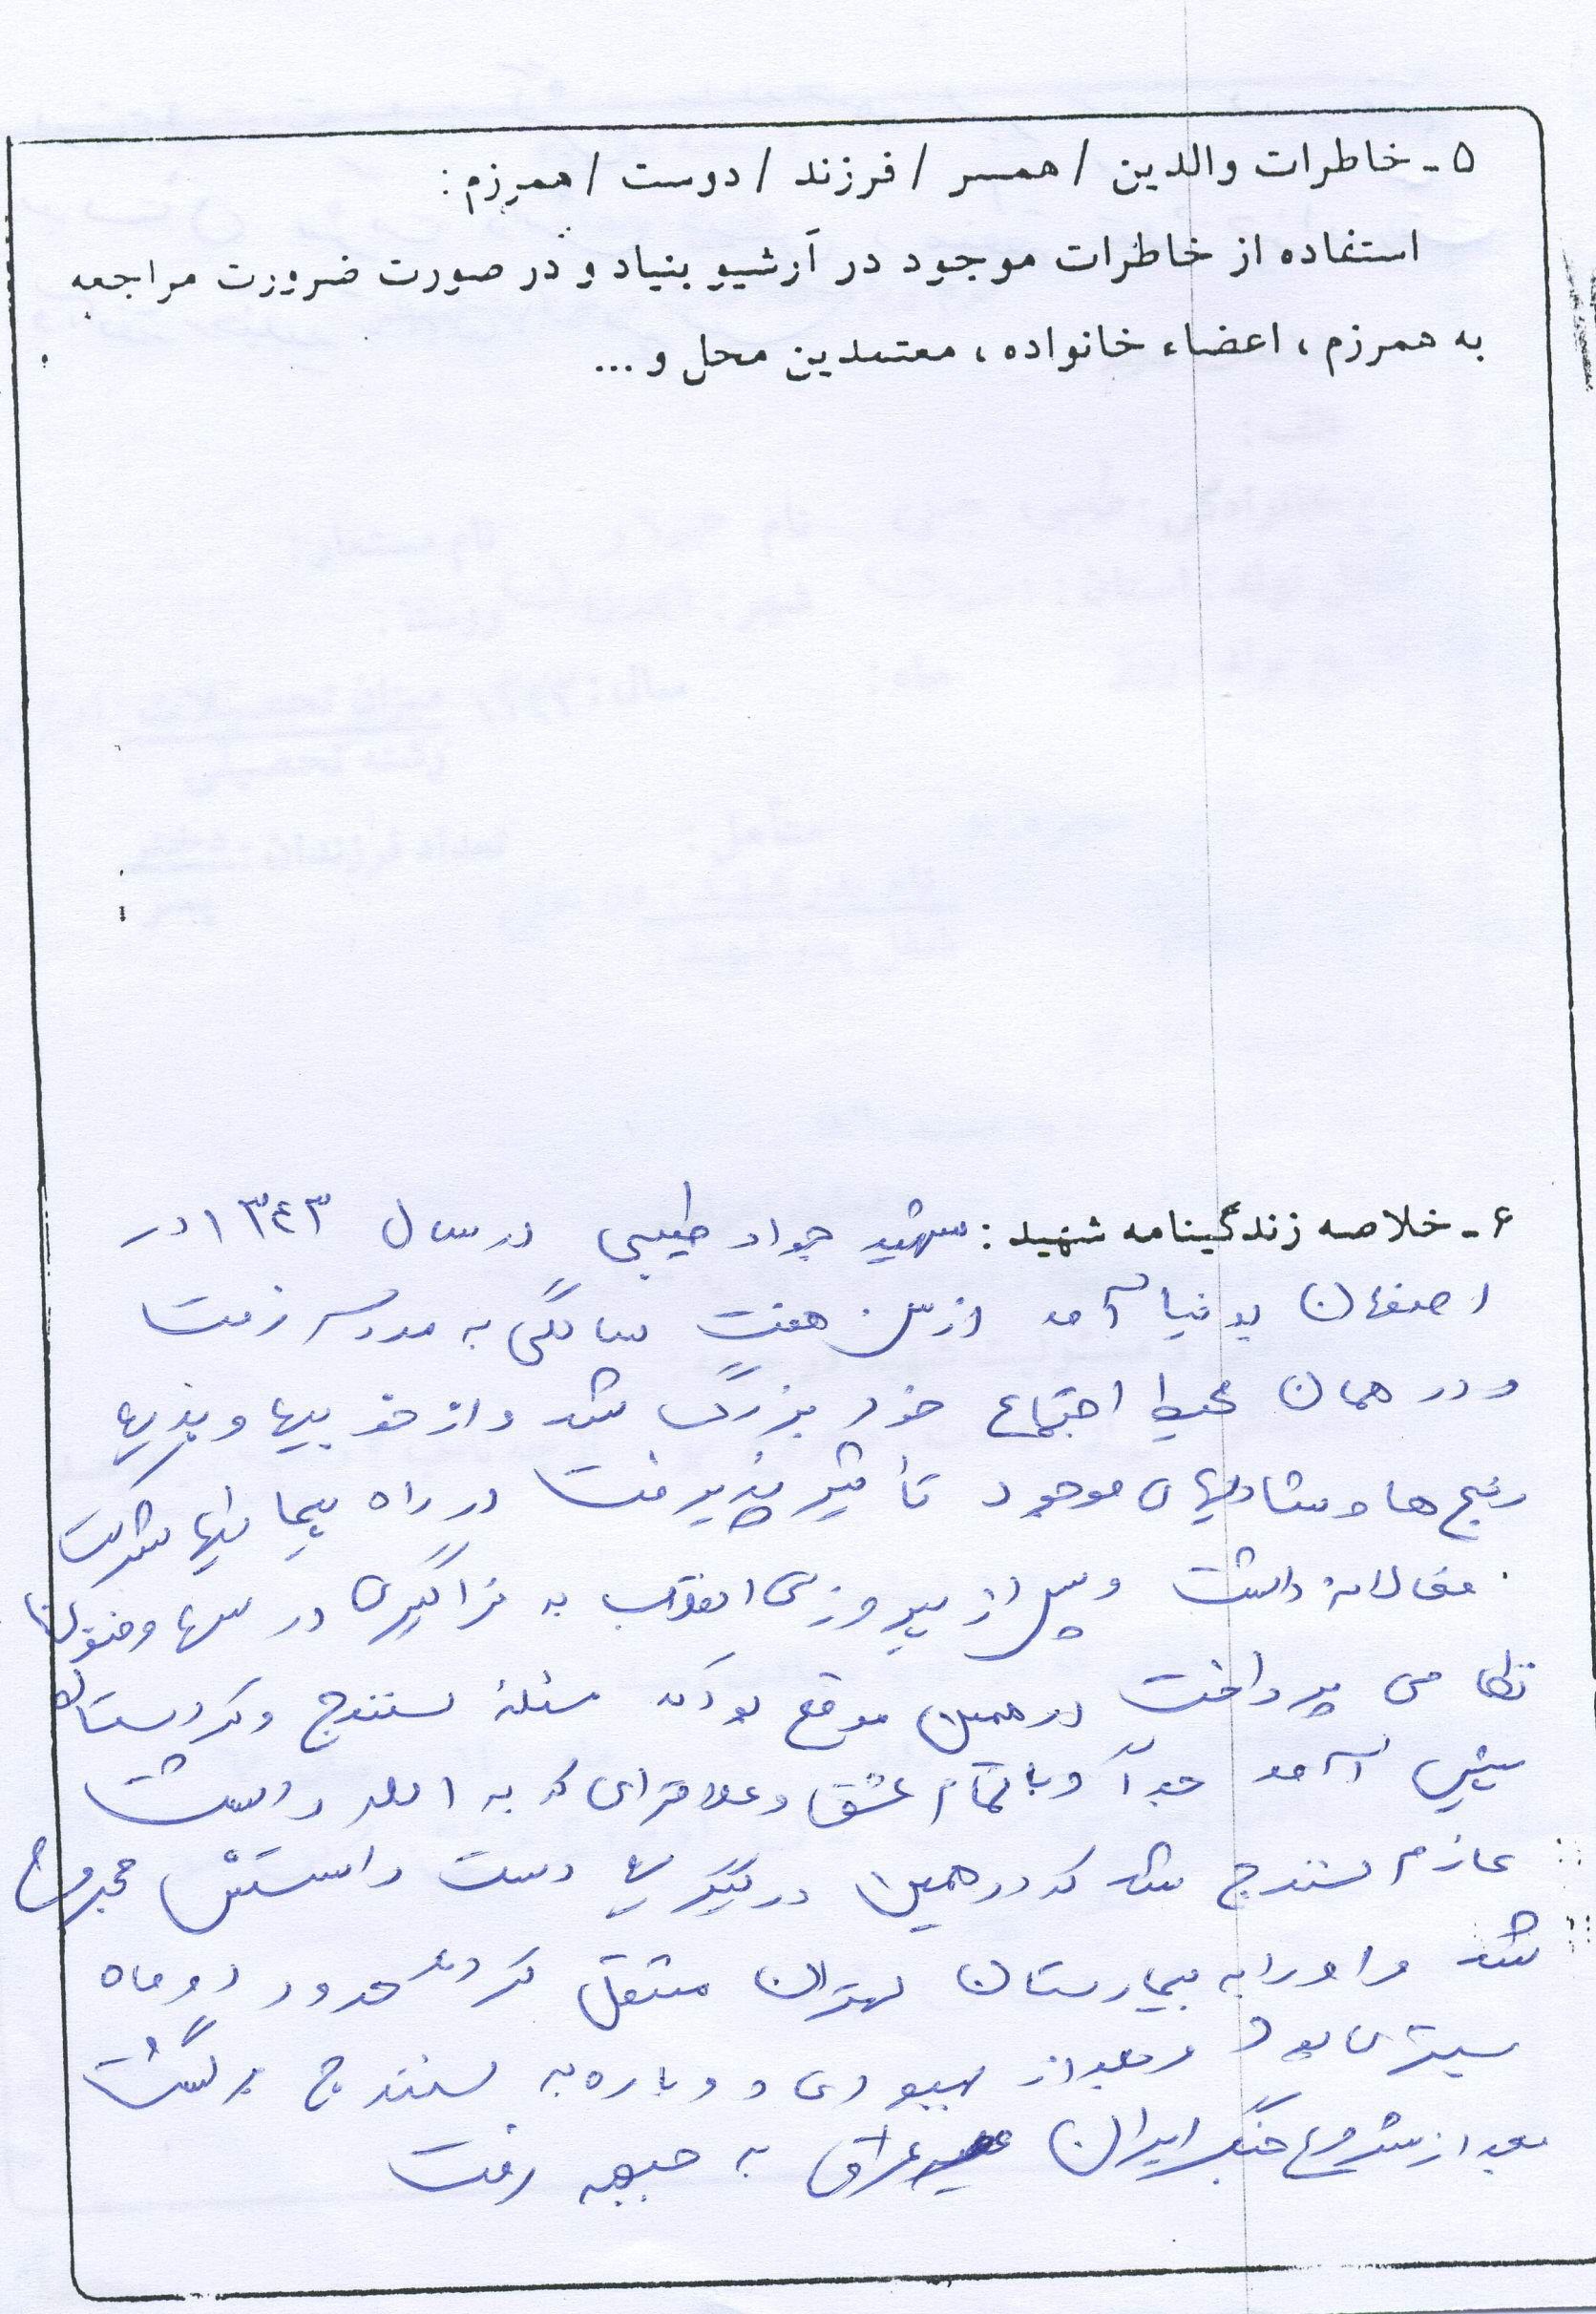 ۵ـ خاطرات والدین / همسر / فرزند / دوست / همرزم :
استفاده از خاطرات موجود در آرشیو بنیاد و در صورت ضرورت مراجعه
به همرزم ، اعضاء خانواده ، معتمدین محل و ...
۶ـ خلاصه زندگینامه شهید : شهید جواد طیبی در سال ۱۳۴۳ در
اصفهان بدنیا آمد از سن هفت سالگی به مدرسه رفت
و در همان محیط اجتماع خود بزرگ شد و از خوبیها و بدیها
رنج ها و شادیهای موجود تأثیر پذیرفت در راه پیمائیها شرکت
فعالانه داشت و پس از پیروزی انقلاب به فراگیری درسها و فنون
نظامی پرداخت در همین موقع بود که مسئله سنندج و کردستان
پیش آمد جواد با تمام عشق و علاقه ای که به الله داشت
عازم سنندج شد که در همین درگیریها دست راستش مجروح
شد و او را به بیمارستان تهران منتقل کردند حدود دو ماه
بستری بود و بعد از بهبودی دوباره به سنندج برگشت
بعد از شروع جنگ ایران عراق به جبهه رفت